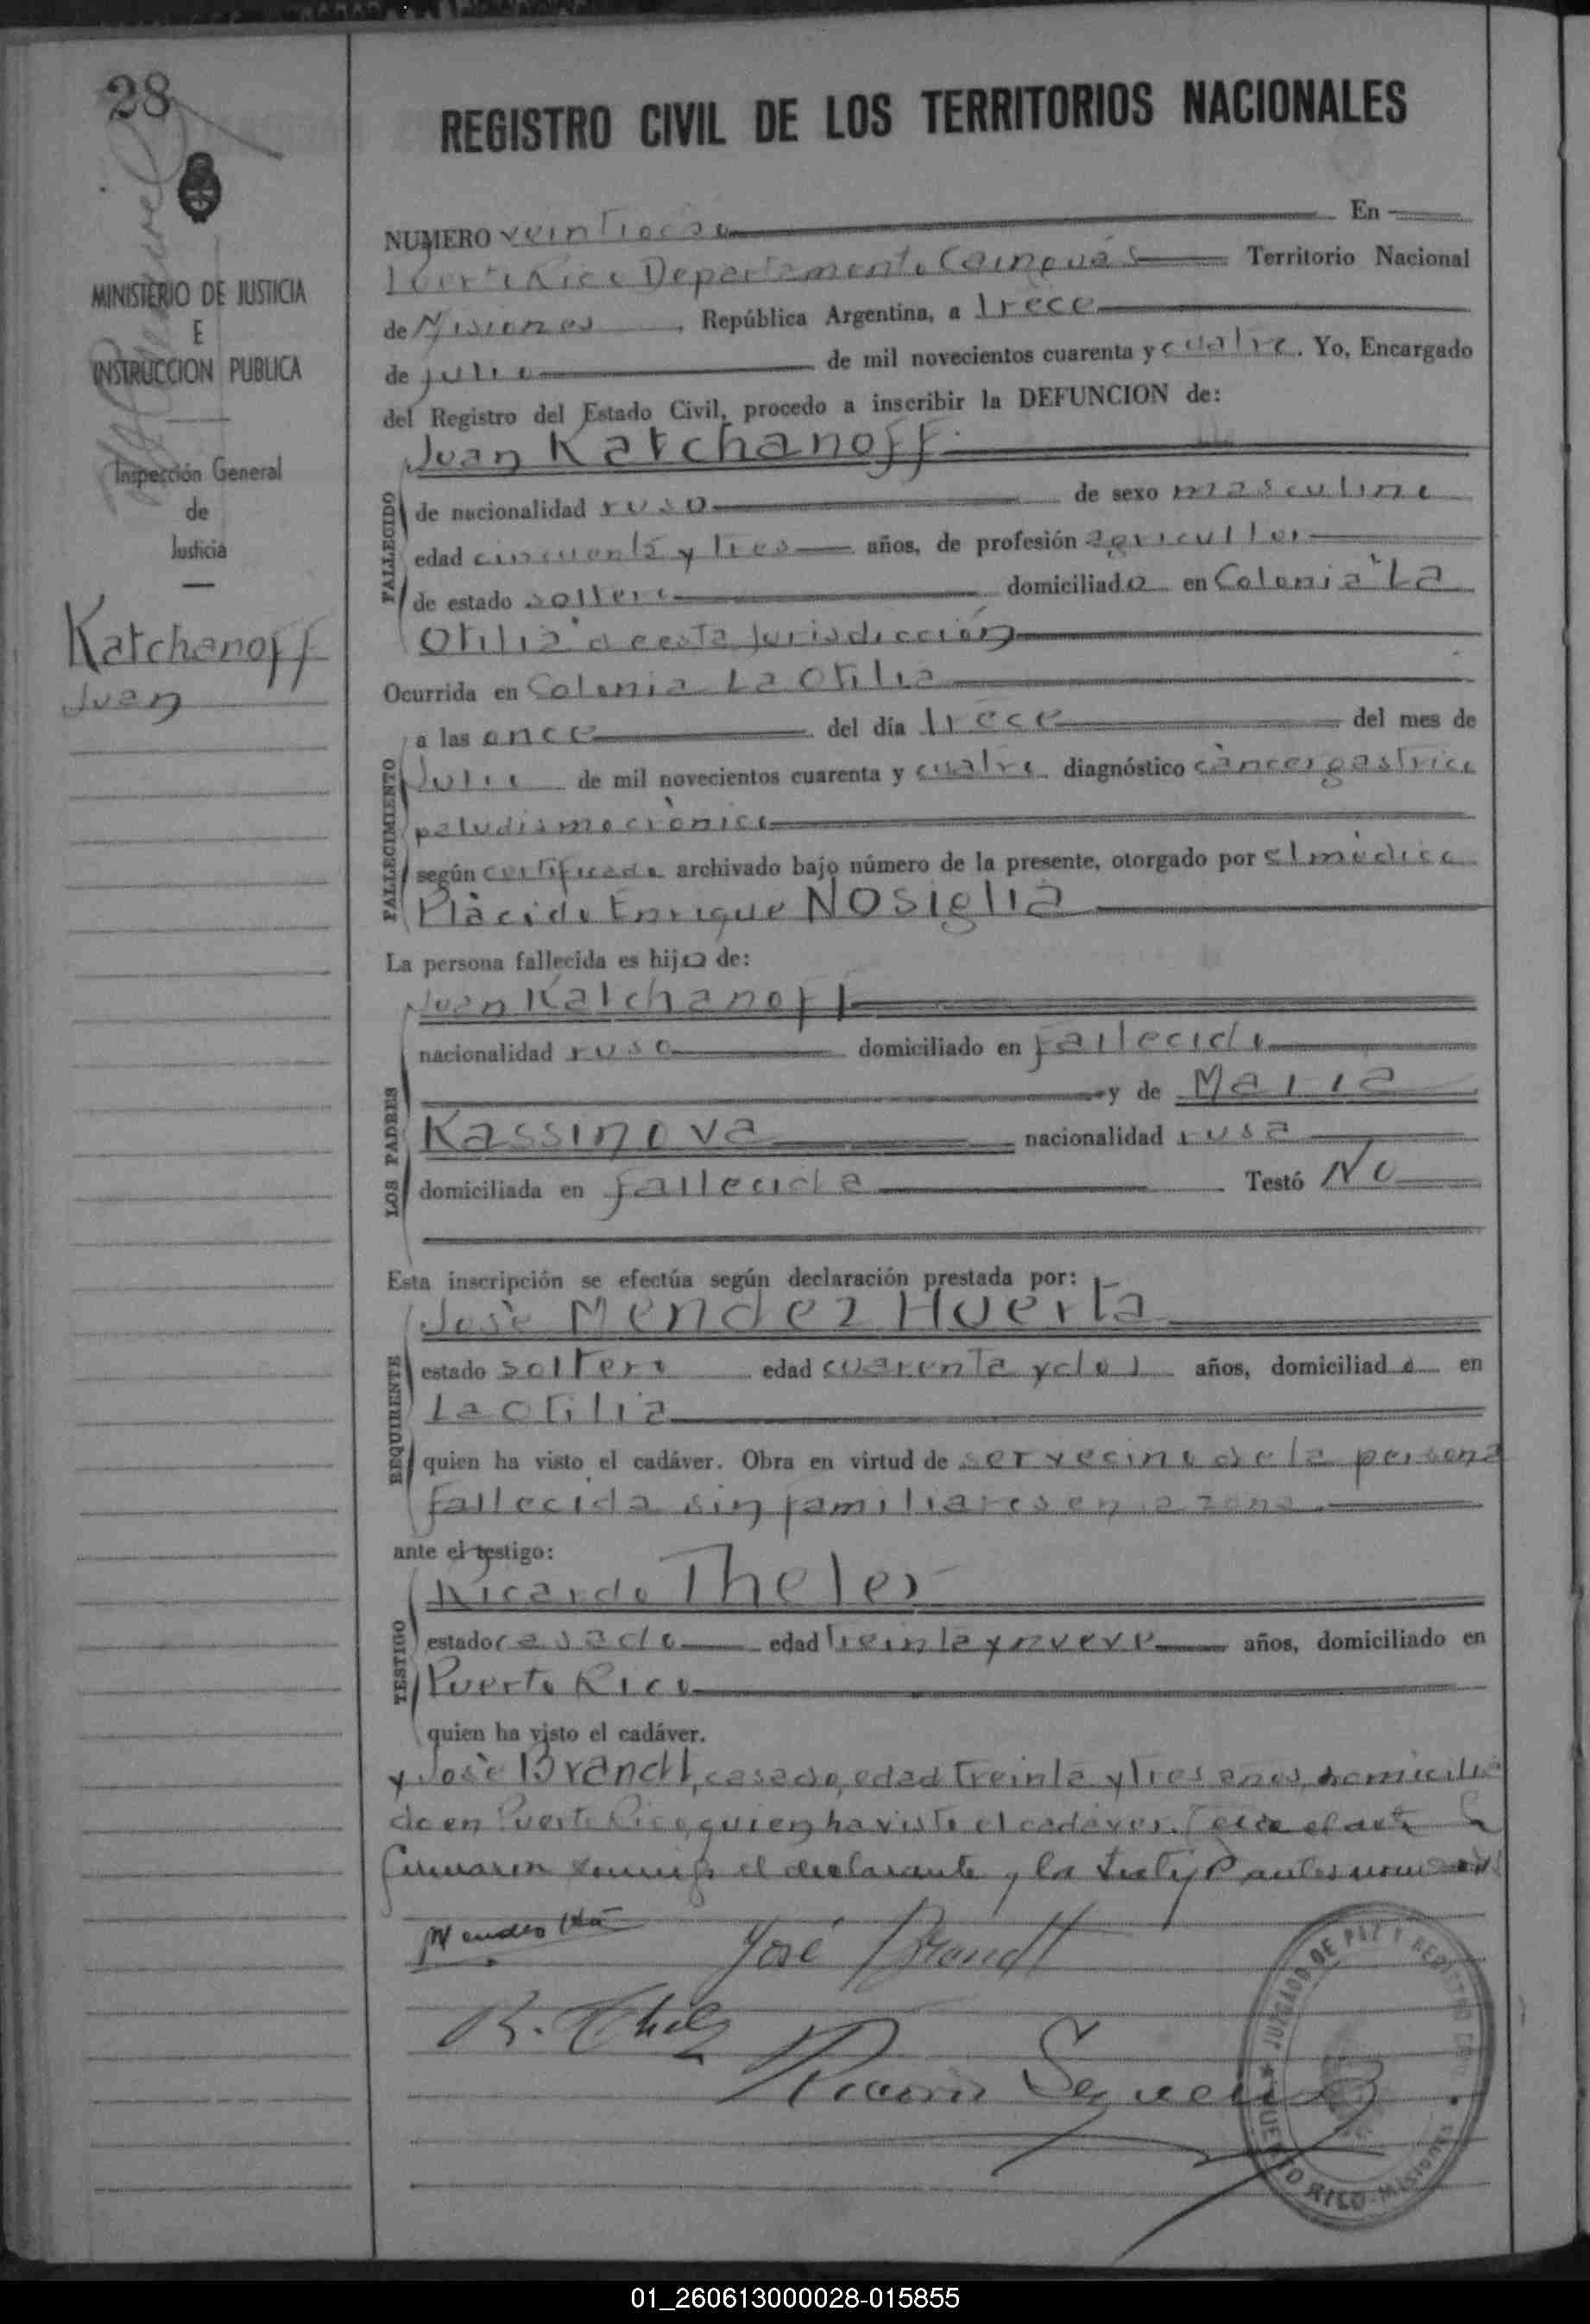 28
MINISTERIO DE JUSTICIA
E
INSTRUCCION PUBLICA
Inspección General
de
Justicia
Katchanoff
Juan
REGISTRO CIVIL DE LOS TERRITORIOS NACIONALES
NUMERO veintiocho En
Puerto Rico Departamento Cainguás Territorio Nacional
de Misiones, República Argentina, a trece
de julio de mil novecientos cuarenta y cuatro. Yo, Encargado
del Registro del Estado Civil, procedo a inscribir la DEFUNCION de:
Juan Katchanoff
FALLECIDO
de nacionalidad ruso de sexo masculino
edad cincuenta y tres años, de profesión agricultor
de estado soltero domiciliado en Colonia "La
Otilia" de esta jurisdicción
Ocurrida en Colonia La Otilia
FALLECIMIENTO
a las once del día trece del mes de
Julio de mil novecientos cuarenta y cuatro diagnóstico càncer gastrico
paludismo crònico
según certificado archivado bajo número de la presente, otorgado por el mèdico
Plàcido Enrique NOSiglia
La persona fallecida es hijo de:
LOS PADRES
Juan Katchanoff
nacionalidad ruso domiciliado en fallecido
y de Maria
Kassinova nacionalidad rusa
domiciliada en fallecida Testó No
Esta inscripción se efectúa según declaración prestada por:
REQUIRENTE
Josè Mendez Huerta
estado soltero edad cuarenta y dos años, domiciliado en
La Otilia
quien ha visto el cadáver. Obra en virtud de ser vecino de la persona
fallecida sin familiares en la zona.
ante el testigo:
TESTIGO
Ricardo Theler
estado casado edad treinta y nueve años, domiciliado en
Puerto Rico
quien ha visto el cadáver.
y Josè Brandt, casado, edad treinta y tres años, domicilia
do en Puerto Rico, quien ha visto el cadàver. el acta la
firmaron conmigo el declarante y los testigos antes
Mendez Hta
José Brandt
R. Theler
JUZGADO DE PAZ Y REGISTRO CIVIL
PUERTO RICO - Misiones
01_260613000028-015855